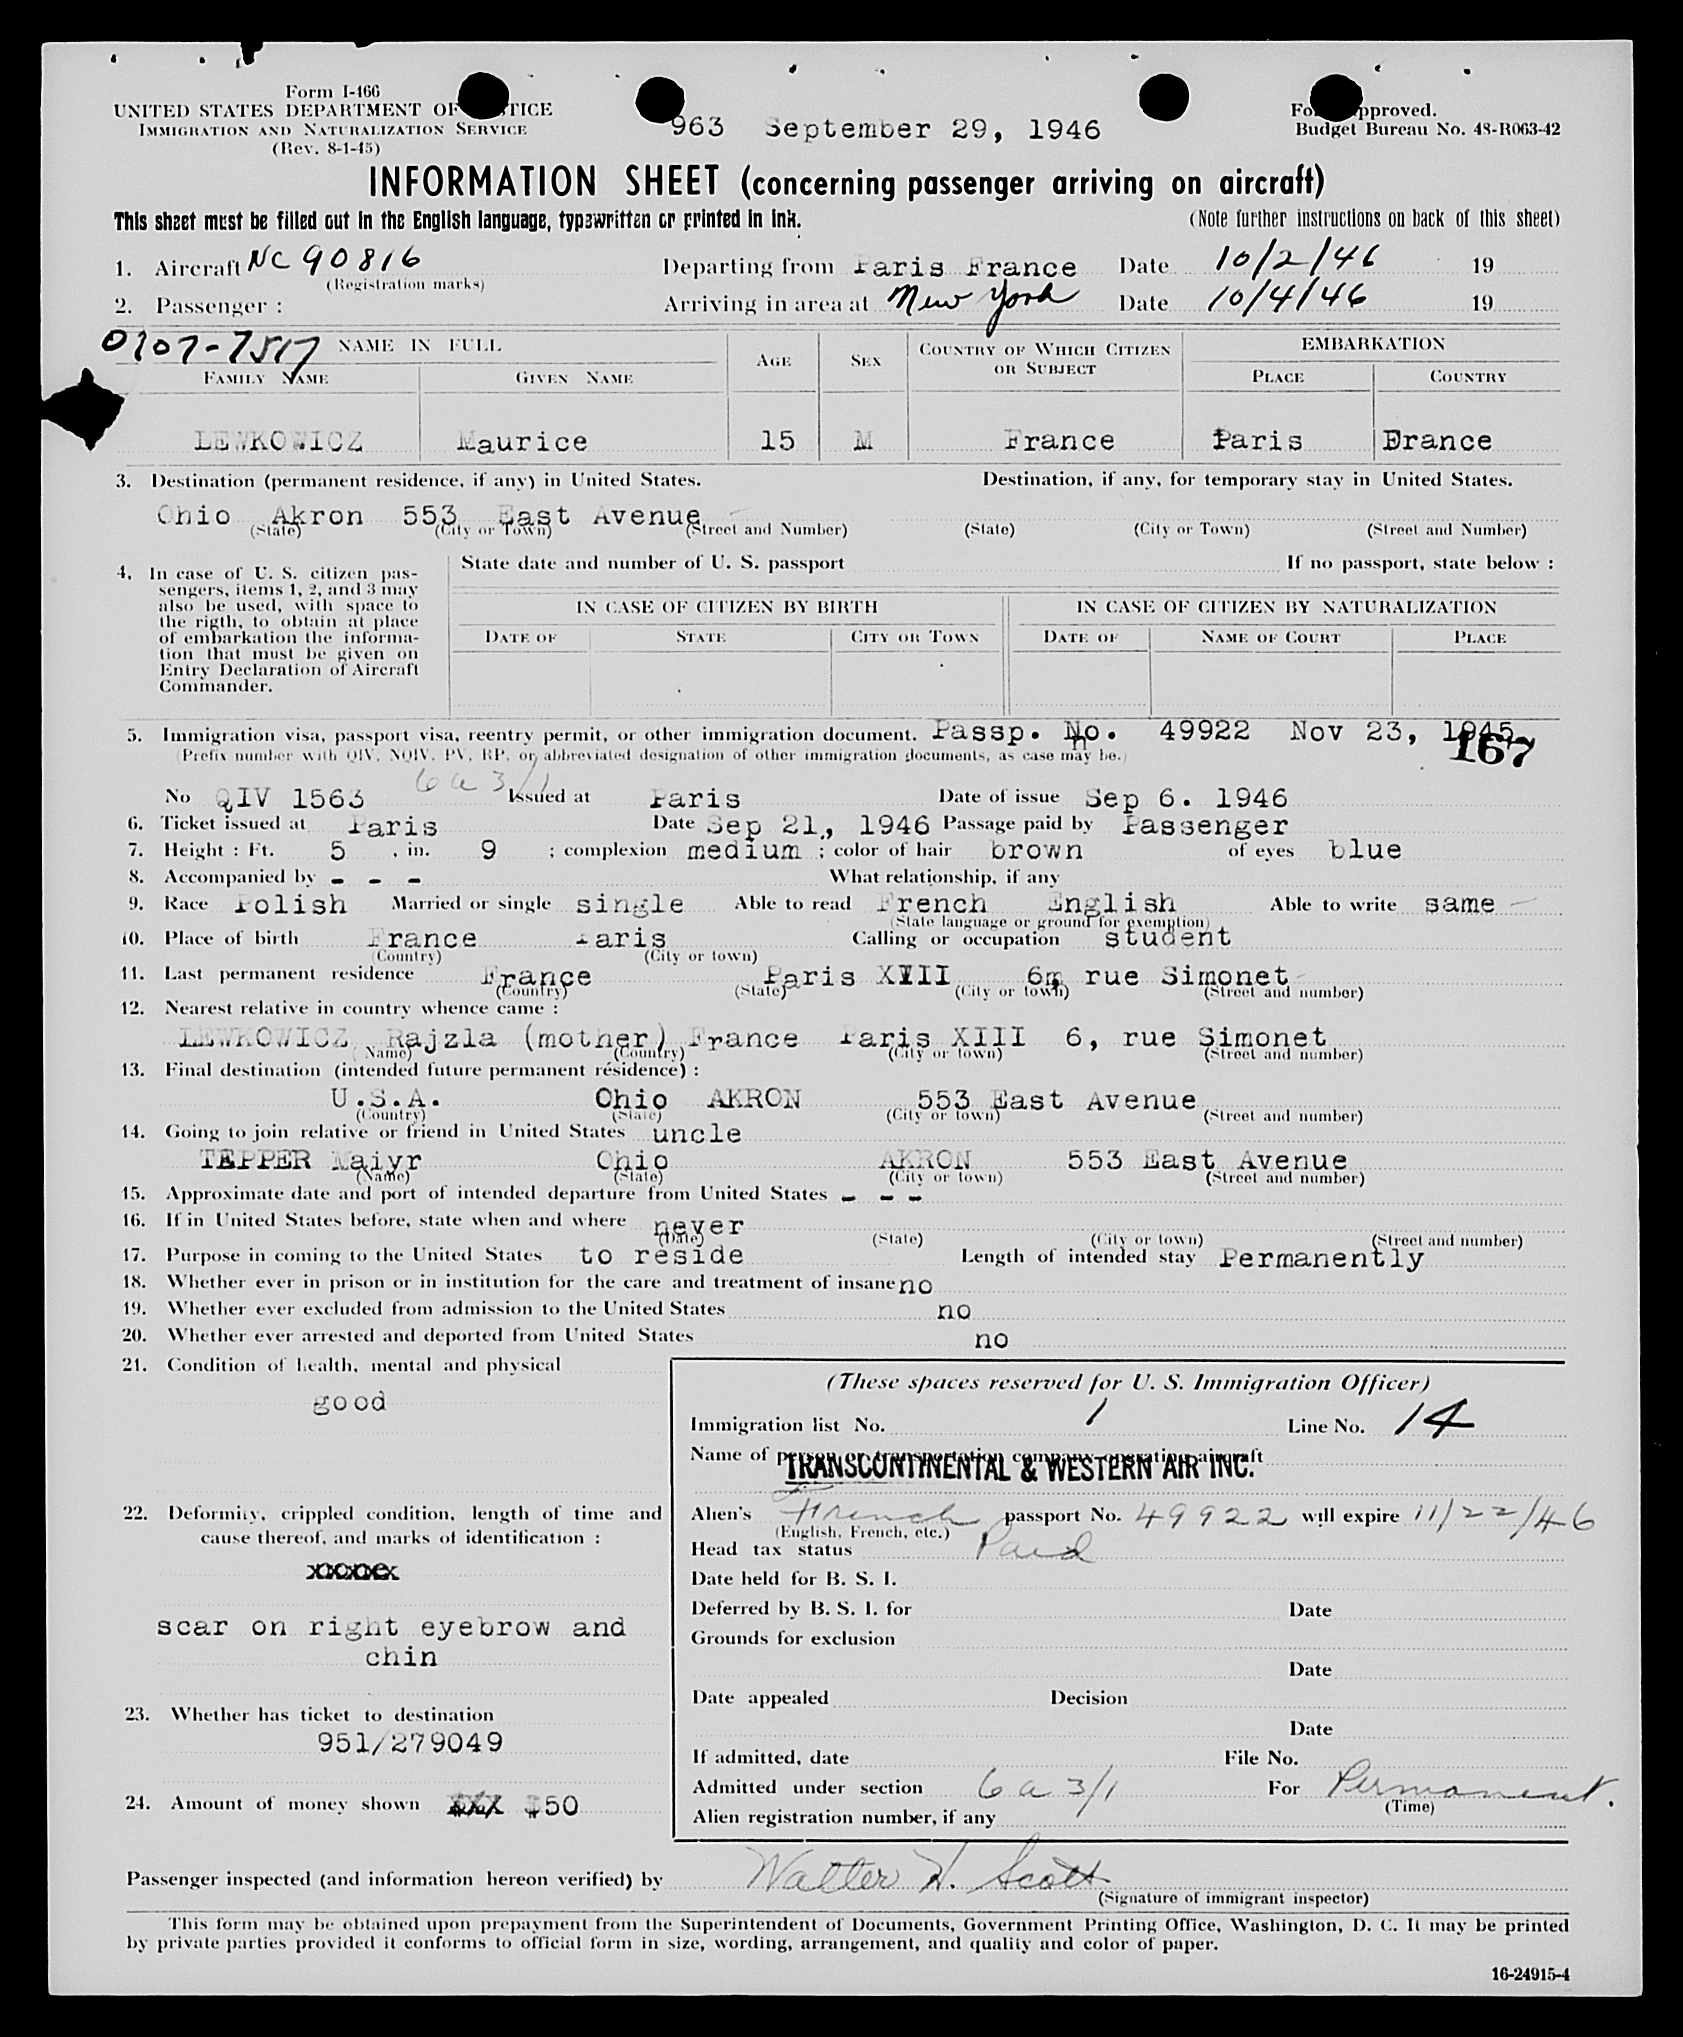 Form I-466
UNITED STATES DEPARTMENT OF JUSTICE
IMMIGRATION AND NATURALIZATION SERVICE
(Rev. 8-1-45)
963 September 29, 1946
Form approved.
Budget Bureau No. 43-R063-42
INFORMATION SHEET (concerning passenger arriving on aircraft)
This sheet must be filled out in the English language, typewritten or printed in ink.
(Note further instructions on back of this sheet)
1. Aircraft NC 90816 Departing from Paris France Date 10/2/46 19
(Registration marks)
2. Passenger : Arriving in area at New York Date 10/4/46 19
0707-7517 NAME IN FULL AGE SEX COUNTRY OF WHICH CITIZEN OR SUBJECT EMBARKATION
FAMILY NAME GIVEN NAME PLACE COUNTRY
LEWKOWICZ Maurice 15 M France Paris France
3. Destination (permanent residence, if any) in United States. Destination, if any, for temporary stay in United States.
Ohio Akron 553 East Avenue -
(State) (City or Town) (Street and Number) (State) (City or Town) (Street and Number)
4. In case of U. S. citizen pas-
sengers, items 1, 2, and 3 may
also be used, with space to
the rigth, to obtain at place
of embarkation the informa-
tion that must be given on
Entry Declaration of Aircraft
Commander.
State date and number of U. S. passport If no passport, state below :
IN CASE OF CITIZEN BY BIRTH IN CASE OF CITIZEN BY NATURALIZATION
DATE OF STATE CITY OR TOWN DATE OF NAME OF COURT PLACE
5. Immigration visa, passport visa, reentry permit, or other immigration document. Passp. No. 49922 Nov 23, 1945
(Prefix number with QIV, NQIV, PV, RP, or abbreviated designation of other immigration documents, as case may be.) 167
6 a 3/1
No QIV 1563 Issued at Paris Date of issue Sep 6. 1946
6. Ticket issued at Paris Date Sep 21, 1946 Passage paid by Passenger
7. Height : Ft. 5 , in. 9 ; complexion medium ; color of hair brown of eyes blue
8. Accompanied by - - - What relationship, if any
9. Race Polish Married or single single Able to read French English Able to write same -
(State language or ground for exemption)
10. Place of birth France Paris Calling or occupation student
(Country) (City or town)
11. Last permanent residence France Paris XIII 6, rue Simonet
(Country) (State) (City or town) (Street and number)
12. Nearest relative in country whence came :
LEWKOWICZ Rajzla (mother) France Paris XIII 6, rue Simonet
(Name) (Country) (City or town) (Street and number)
13. Final destination (intended future permanent résidence) :
U.S.A. Ohio AKRON 553 East Avenue
(Country) (State) (City or town) (Street and number)
14. Going to join relative or friend in United States uncle
TEPPER Maiyr Ohio AKRON 553 East Avenue
(Name) (State) (City or town) (Street and number)
15. Approximate date and port of intended departure from United States - - -
16. If in United States before, state when and where never
(Date) (State) (City or town) (Street and number)
17. Purpose in coming to the United States to reside Length of intended stay Permanently
18. Whether ever in prison or in institution for the care and treatment of insane no
19. Whether ever excluded from admission to the United States no
20. Whether ever arrested and deported from United States no
21. Condition of health, mental and physical
good
22. Deformity, crippled condition, length of time and
cause thereof, and marks of identification :
scar on right eyebrow and
chin
23. Whether has ticket to destination
951/279049
24. Amount of money shown $50
(These spaces reserved for U. S. Immigration Officer)
Immigration list No. 1 Line No. 14
Name of person or transportation company operating aircraft
TRANSCONTINENTAL & WESTERN AIR INC.
Alien's French passport No. 49922 will expire 11/22/46
(English, French, etc.)
Head tax status Paid
Date held for B. S. I.
Deferred by B. S. I. for Date
Grounds for exclusion
Date
Date appealed Decision
Date
If admitted, date File No.
Admitted under section 6 a 3/1 For Permanent.
(Time)
Alien registration number, if any
Passenger inspected (and information hereon verified) by Walter H. Scott
(Signature of immigrant inspector)
This form may be obtained upon prepayment from the Superintendent of Documents, Government Printing Office, Washington, D. C. It may be printed
by private parties provided it conforms to official form in size, wording, arrangement, and quality and color of paper.
16-24915-4